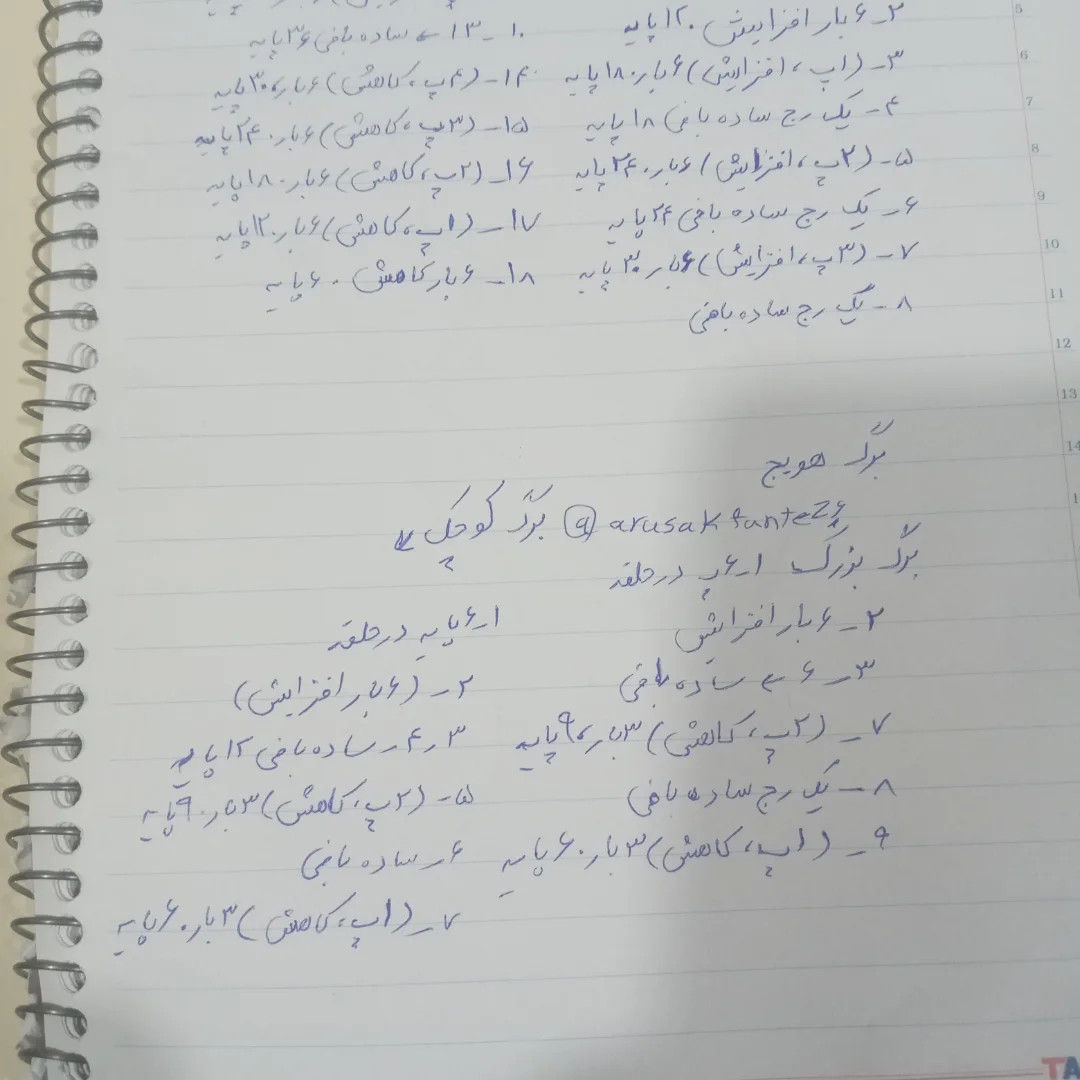 ۲_ ۶ بار افزایش ۱۲۰ پایه
۳_ (۱پ، افزایش) ۶ بار ۱۸۰ پایه
۴_ یک رج ساده بافی ۱۸ پایه
۵_ (۲پ، افزایش) ۶ بار ۲۴۰ پایه
۶_ یک رج ساده بافی ۲۴ پایه
۷_ (۳پ، افزایش) ۶ بار ۳۰ پایه
۸_ یک رج ساده بافی
۱۰_۱۳ ← ساده بافی ۳۶ پایه
۱۴_ (۴پ، کاهش) ۶ بار، ۳۰ پایه
۱۵_ (۳پ، کاهش) ۶ بار. ۲۴ پایه
۱۶_ (۲پ، کاهش) ۶ بار. ۱۸ پایه
۱۷_ (۱پ، کاهش) ۶ بار. ۱۲ پایه
۱۸_ ۶ بار کاهش. ۶ پایه
برگ هویج
@arusak fante26
برگ بزرگ ۱_۶پ در حلقه
۲_ ۶ بار افزایش
۳_ ۶ ← ساده بافی
۷_ (۲پ، کاهش) ۳ بار، ۹ پایه
۸_ یک رج ساده بافی
۹_ (۱پ، کاهش) ۳ بار. ۶ پایه
برگ کوچک
۱_ ۶ پایه در حلقه
۲_ (۶ بار افزایش)
۳_ ۴_ ساده بافی ۱۲ پایه
۵_ (۲پ، کاهش) ۳ بار. ۹ پایه
۶_ ساده بافی
۷_ (۱پ، کاهش) ۳ بار. ۶ پایه
5
6
7
8
9
10
11
12
13
14
1
TA